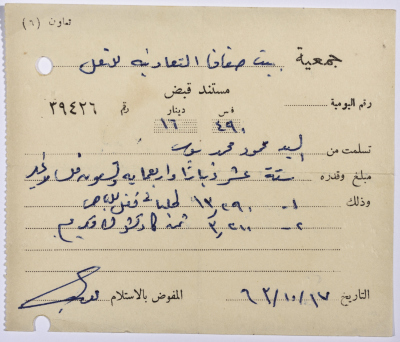 تعاون (٦)
جمعية بيت صفافا التعاونية للنقل
مستند قبض
رقم اليومية
فلس دينار
٤٩٠ ١٦ رقم ٣٩٤٢٦
تسلمت من السيد محمود محمد
مبلغ وقدره ستة عشر ديناراً واربعماية وتسعون فلس لا غير
وذلك ١- ١٣,٢٩٠
٢- ٣,٢٠٠ ثمن
التاريخ ٦٢/١٠/١٧ المفوض بالاستلام